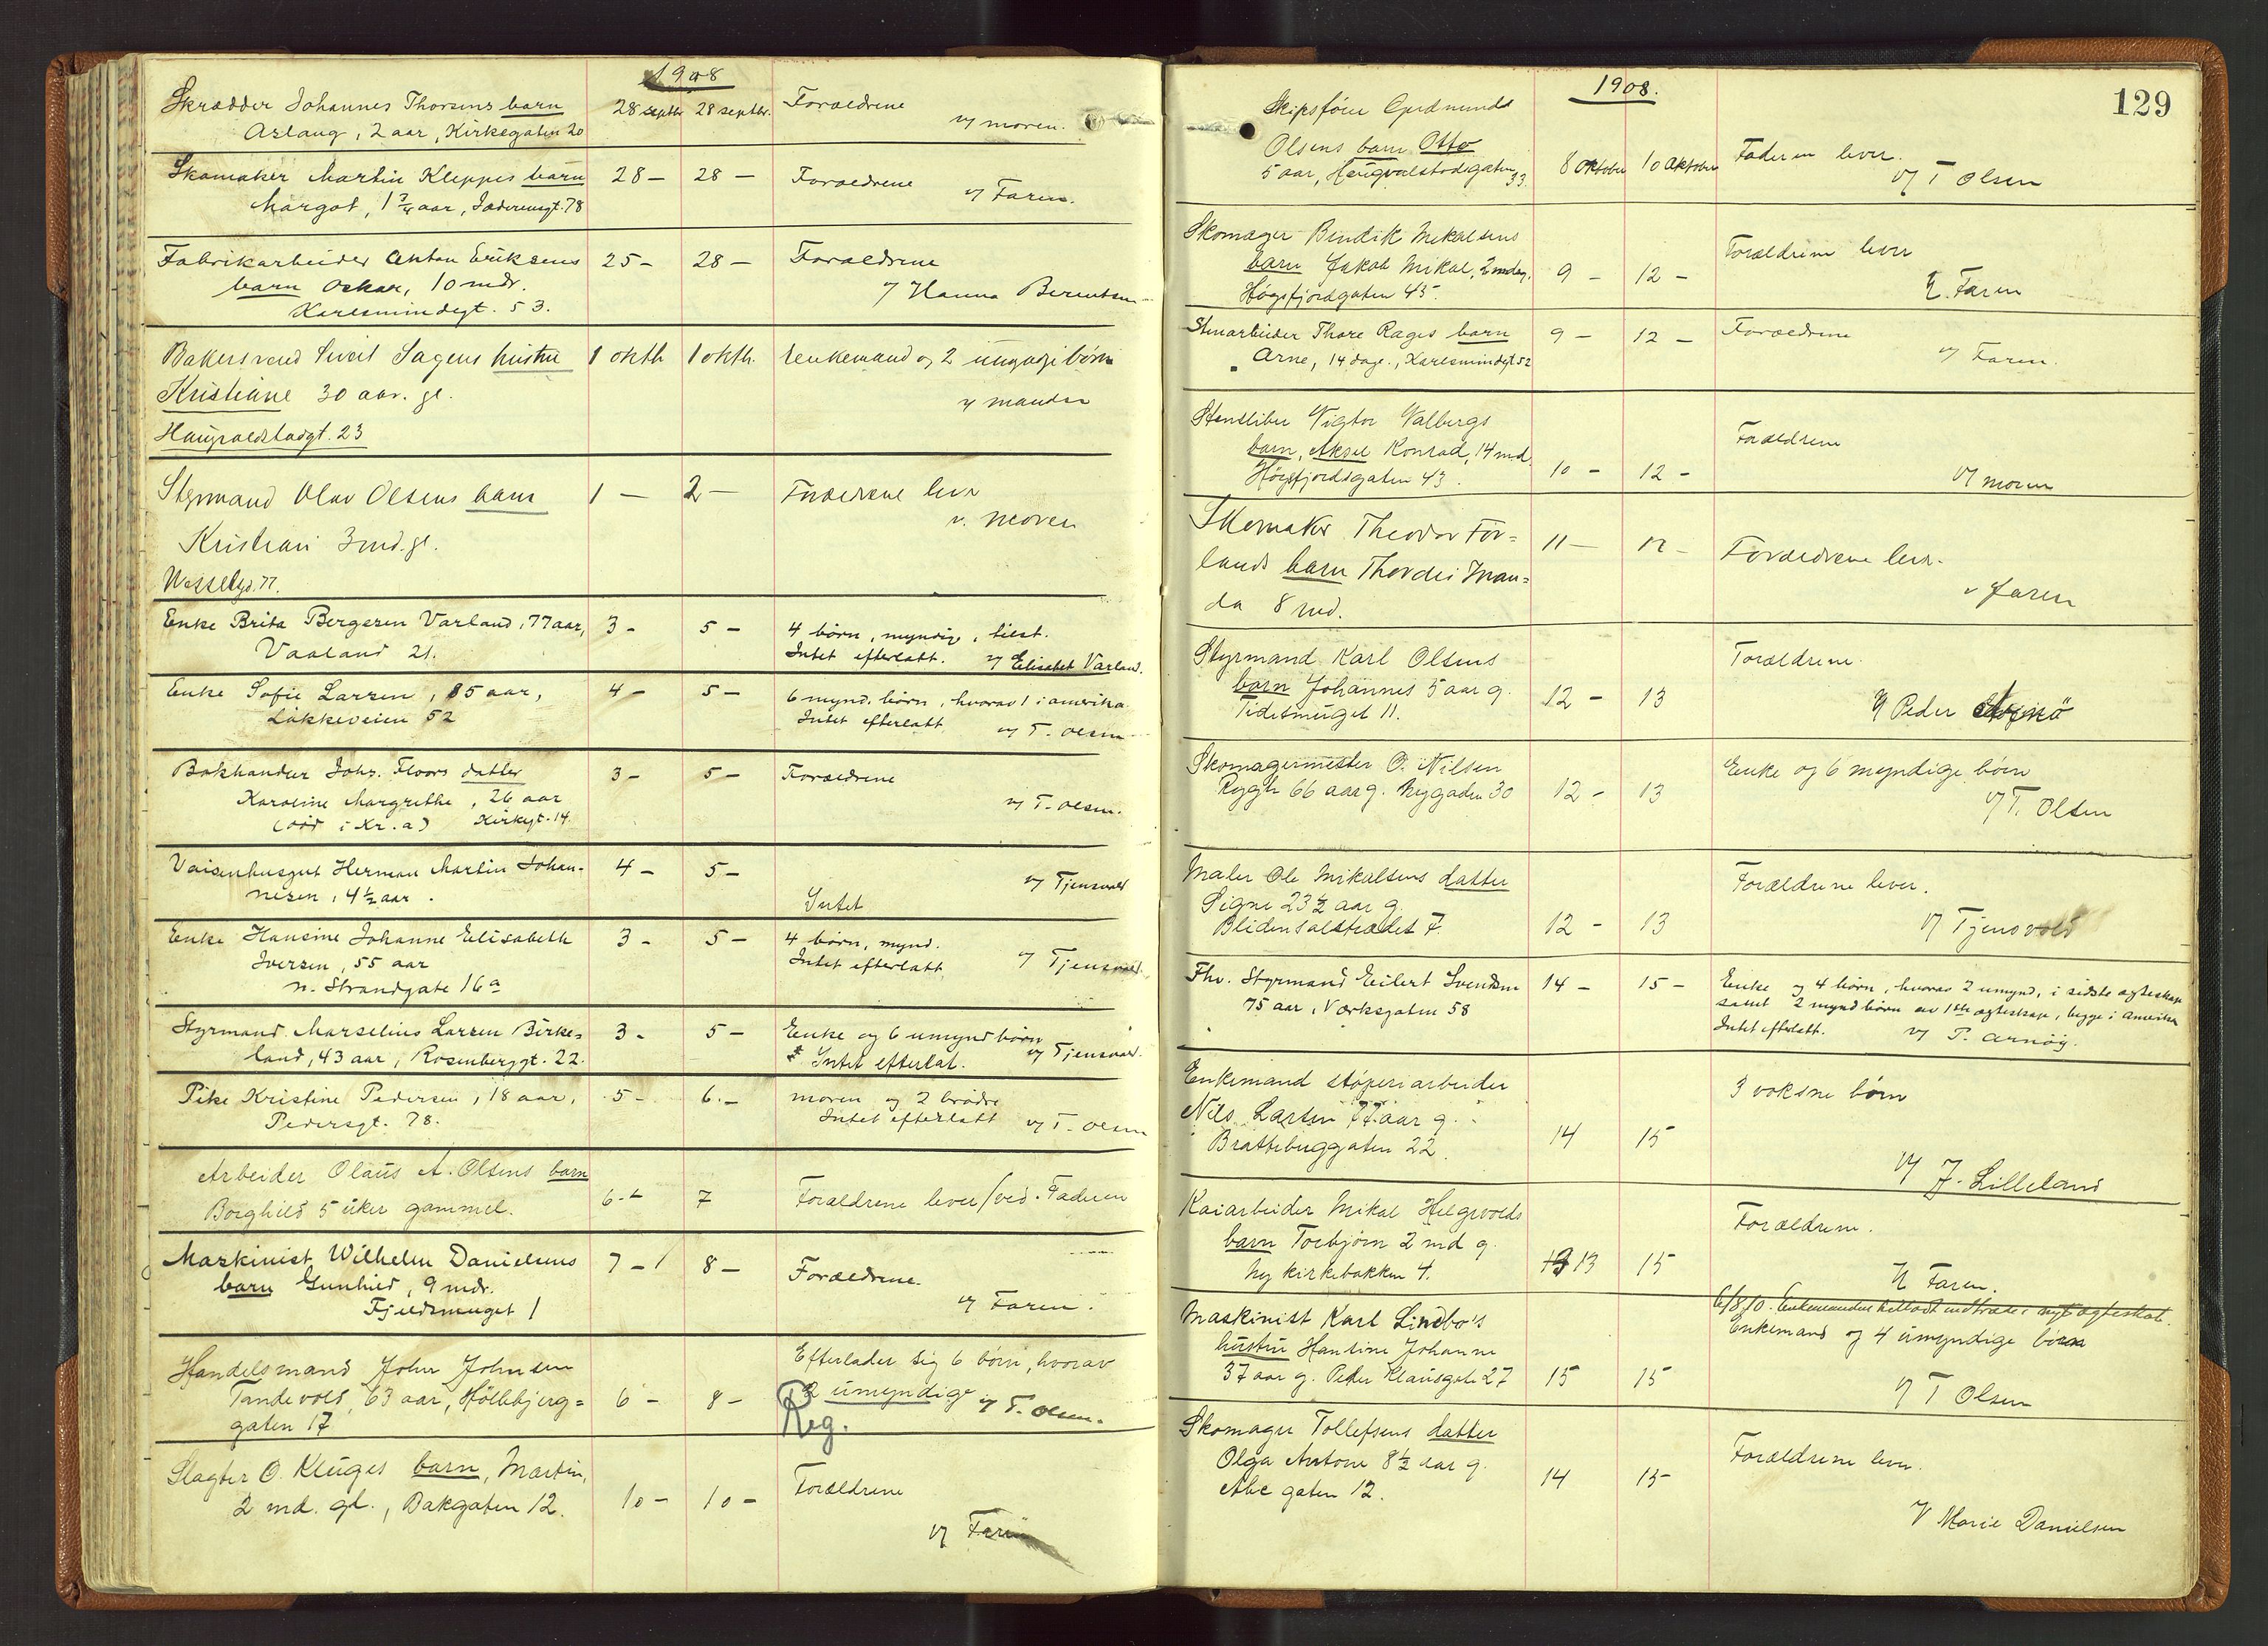 1908
Skrædder Johannes Thorsens barn
Aslaug, 2 aar, Kirkegaten 20
28 septbr 28 septbr.
Forældrene
v/ moren.
Skomaker Martin Kleppes barn
Margot, 1 3/4 aar, Jæderensgt. 78
28 – 28 –
Forældrene
v/ Faren.
Fabrikarbeider Anton Eriksens
barn Oskar, 10 mdr.
Karlsmindegt. 53.
25 – 28 –
Forældrene
v/ Hanna Berentsen
Bakersvend Sivert Sagens hustru
Kristiane 30 aar. gl.
Haugvaldstadgt. 23
1 oktb 1 oktb.
Enkemand og 2 umyndige børn
v/ manden
Styrmand Olav Olsens barn
Kristian 3 md. gl.
Wesselsgd. 77.
1 – 2 –
Forældrene lever
v. moren
Enke Brita Bergesen Varland, 77 aar,
Vaaland 21.
3 – 5 –
4 børn, myndige, tilst.
Intet efterlatt. v/ Elisabet Varland.
Enke Sofie Larsen, 85 aar,
Løkkeveien 52
4 – 5 –
6 mynd. børn, hvorav 1 i amerika
Intet efterlatt
v/ T. Olsen
Bokhandler Johs. Floors datter
Karoline Margrethe, 26 aar
(død i Kr.a) Kirkegt. 14.
3 – 5 –
Forældrene
v/ T. Olsen.
Vaisenhusgut Herman Martin Johan-
nesen, 4 1/2 aar.
4 – 5 –
v/ Tjensvold
Intet
Enke Hansine Johanne Elisabeth
Iversen, 55 aar
n. Strandgate 16 a
3 – 5 –
4 børn, mynd.
Intet efterlatt.
v/ Tjensvold.
Styrmand Marselius Larsen Birke=
land, 43 aar, Rosenberggt. 22.
3 – 5 –
Enke og 6 umynd børn
Intet efterlat.
v/ Tjensvold.
Pike Kristine Pedersen, 18 aar,
Pedersgt. 78.
5 – 6 –
moren og 2 brødre
Intet efterlatt
v/ T. Olsen
Arbeider Olaus A. Olsens barn
Borghild 5 uker gammel.
6 – 7
Forældrene lever / ved. Faderen
Maskinist Wilhelm Danielsens
barn Gunhild, 9 mdr.
Fjeldsmuget 1
7 – 8 –
Forældrene.
v/ Faren.
Handelsmand John Johnsen
Tandevold, 63 aar, Høllebjerg=
gaten 17
6 – 8 –
Efterlader sig 6 børn, hvorav
2 umyndige
v/ T. Olsen.
Reg.
Slagter O. Kluges barn, Martin,
2 md. gl., Bakgaten 12.
10 – 10 –
Forældrene
v/ Faren
129
1908.
Skipsfører Gudmunds
Olsens barn Otto
5 aar, Haugvalstadsgaten 33.
8 Oktober 10 Oktober
Faderen lever.
v/ T Olsen
Skomager Bendik Mikalsens
barn Jakob Mikal, 2 mdg.
Høgsfjordgaten 45.
9 – 12 –
Forældrene lever
v. Faren
Stenarbeider Thore Rages barn
Arne, 14 dage., Karlsmindegt 52
9 – 12 –
Forældrene
v/ Faren.
Stensliber Vigtor Valbergs
barn, Aksel Konrad, 14 md.
Høgsfjordsgaten 43.
10 – 12 –
Forældrene
v/ moren
Skomaker Theodor Før=
lands barn Thordis Iman=
da 8 md.
11 – 12 –
Forældrene lever.
v Faren
Styrmand Karl Olsens
barn Johannes 5 aar g.
Tidesmuget 11.
12 – 13
Forældrene.
v/ Peder
Skomagermester O. Nilsen
Rygh 66 aar g. Nygaden 30
12 – 13
Enke og 6 myndige børn
v/ T. Olsen
Maler Ole Mikalsens datter
Signe 23 1/2 aar g.
Blidensolstrædet 7.
12 – 13
Forældrene lever.
v/ Tjensvold
Fhv. Styrmand Eilert Svendsen
75 aar, Værksgaten 58
14 – 15 –
Enke og 4 børn, hvorav 2 umynd, i sidste ægteskap
samt 2 mynd børn av 1ste ægteskap, begge i amerika
Intet efterlatt. v/ P. Arnøy.
Enkemand støperiarbeider
Nils Larsen 77 aar g.
Brattebuggaten 22.
14 15
3 voksne børn
v/ J. Lilleland
Kaiarbeider Mikal Helgevolds
barn Torbjørn 2 md g.
Ny kirkebakken 4.
13 15
Forældrene.
v/ Faren.
Maskinist Karl Lindbo's
hustru Hansine Johanne
37 aar g. Peder Klausgate 27
15 15
6/8 10. Enkemanden tilladt indtræde i nyt ægteskab.
Enkemand og 4 umyndige børn
v/ T Olsen
Skomager Tollefsens datter
Olga Antone 8 1/2 aar g.
Abc gaten 12.
14 15
Forældrene lever.
v Marie Danielsen